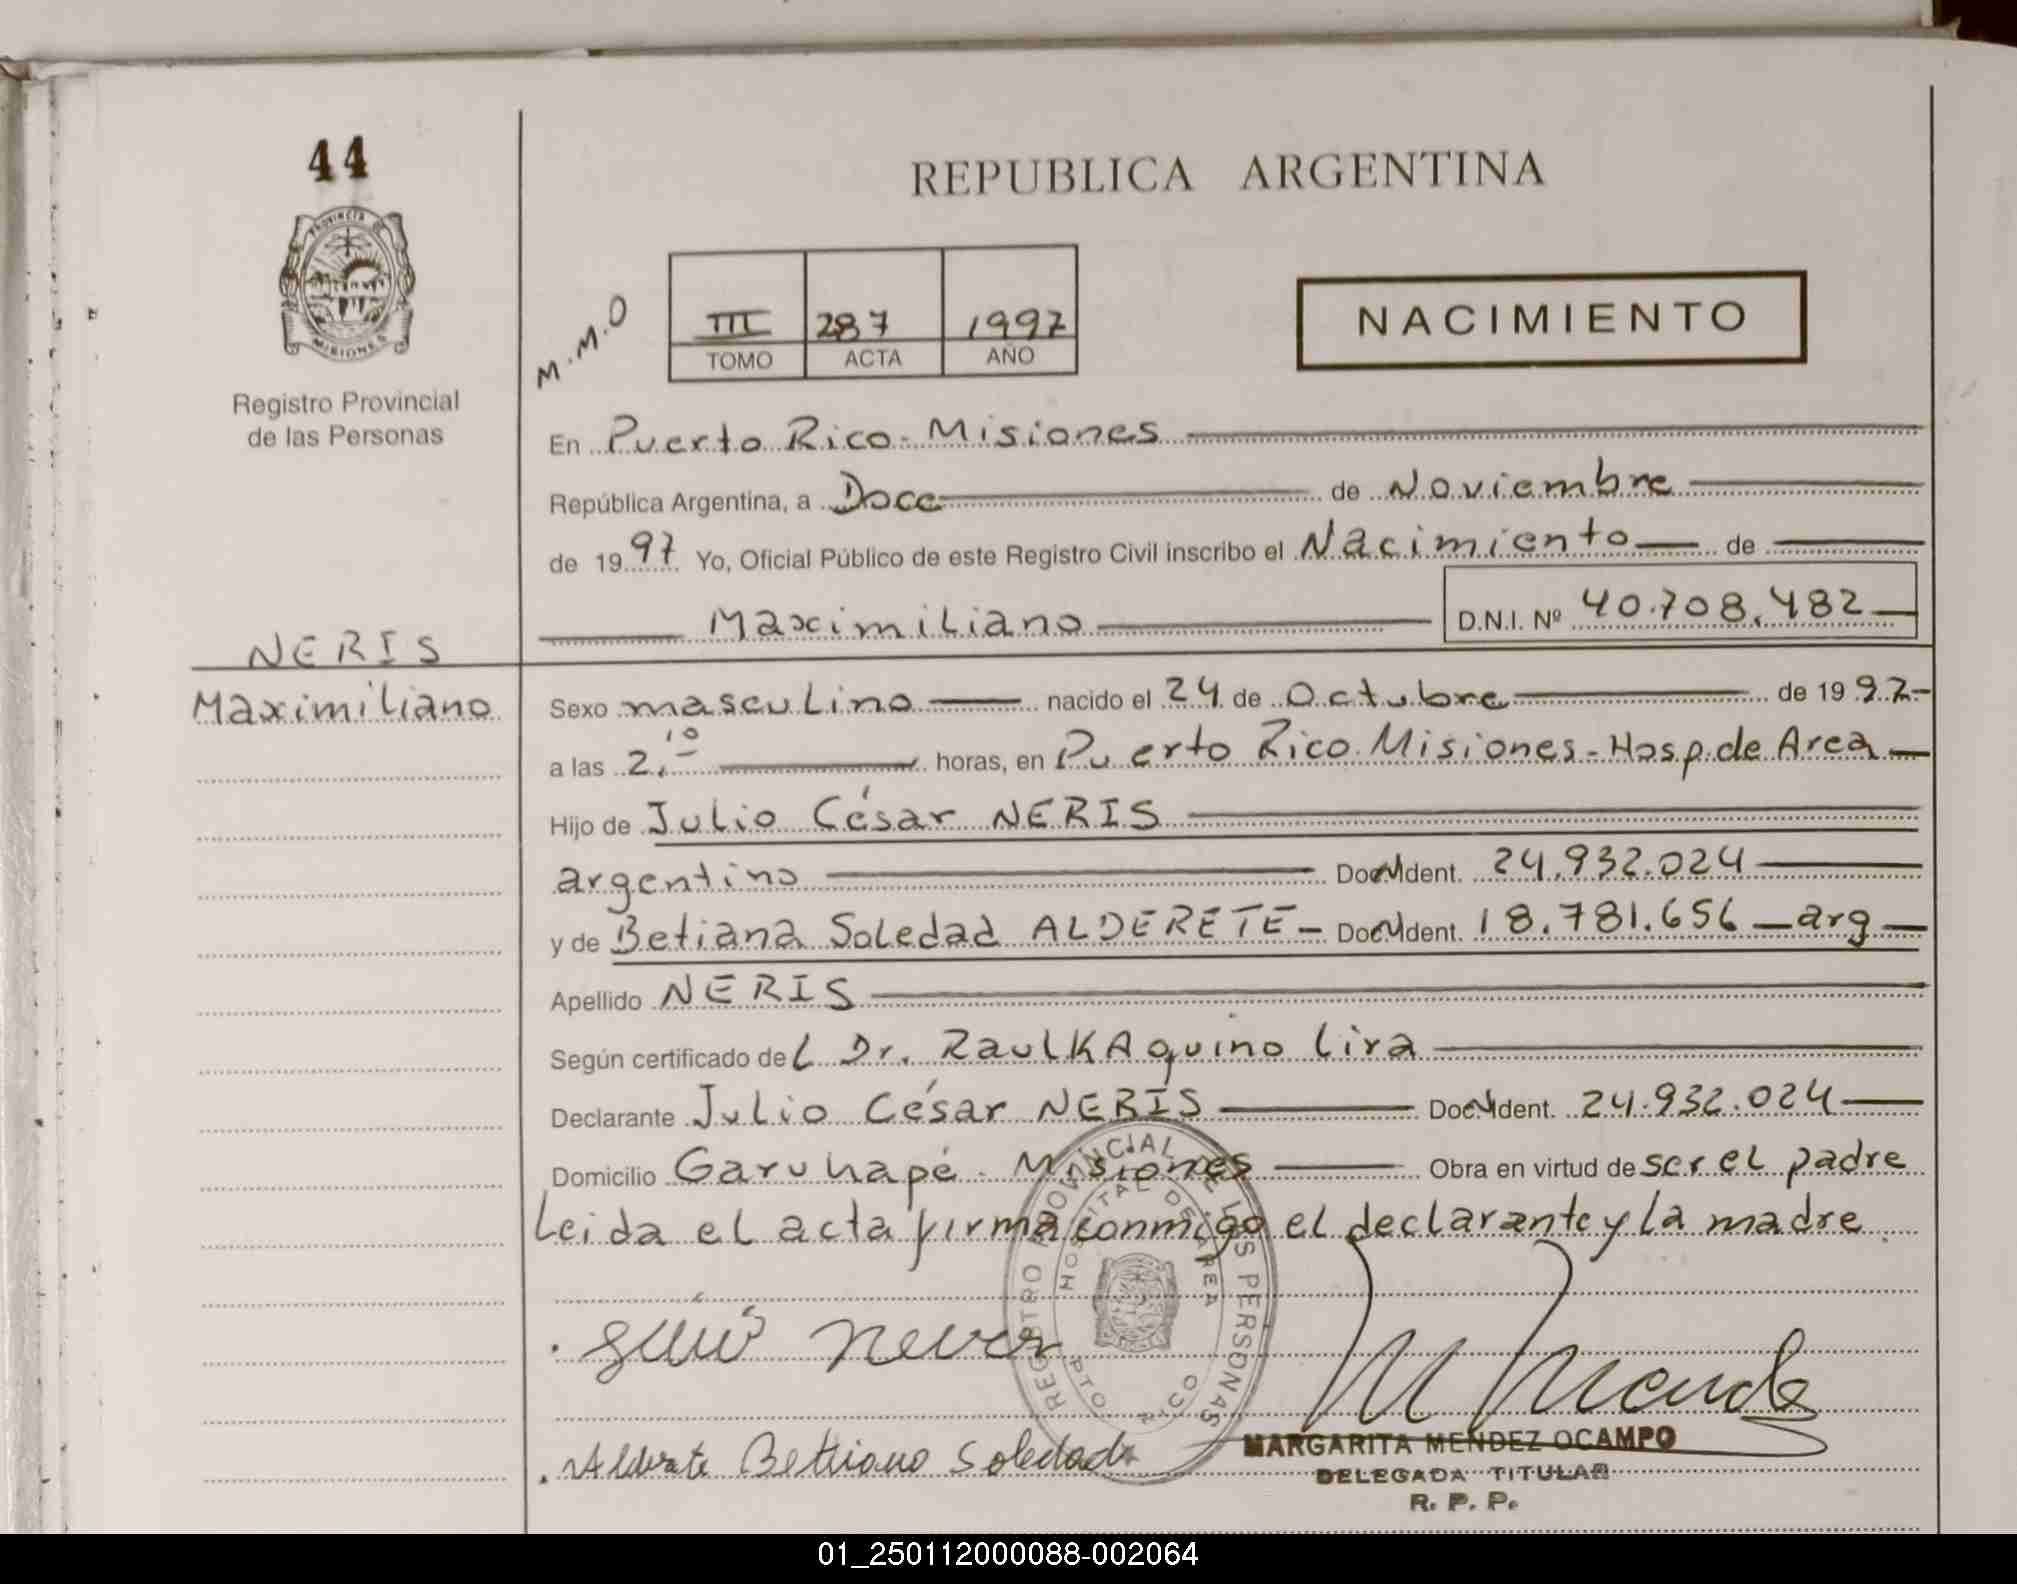 44
PROVINCIA DE
MISIONES
Registro Provincial
de las Personas
REPUBLICA ARGENTINA
M.M.O
III 287 1997
TOMO ACTA AÑO
NACIMIENTO
En Puerto Rico - Misiones
República Argentina, a Doce de Noviembre
de 1997 Yo, Oficial Público de este Registro Civil inscribo el Nacimiento de
Maximiliano D.N.I. Nº 40.708.482
NERIS
Maximiliano
Sexo masculino nacido el 24 de Octubre de 1997-
a las 2,10 horas, en Puerto Rico. Misiones - Hosp. de Area
Hijo de Julio César NERIS
argentino Doc. N Ident. 24.932.024
y de Betiana Soledad ALDERETE - Doc. N Ident. 18.781.656 - arg
Apellido NERIS
Según certificado del Dr. Raul K Aquino Lira
Declarante Julio César NERIS Doc. N Ident. 24.932.024
Domicilio Garuhapé - Misiones Obra en virtud de ser el padre
Leida el acta firma conmigo el declarante y la madre
REGISTRO PROVINCIAL DE LAS PERSONAS
HOSPITAL DE AREA
PTO RICO
Alderete Bethiana Soledad
MARGARITA MENDEZ OCAMPO
DELEGADA TITULAR
R. P. P.
01_250112000088-002064